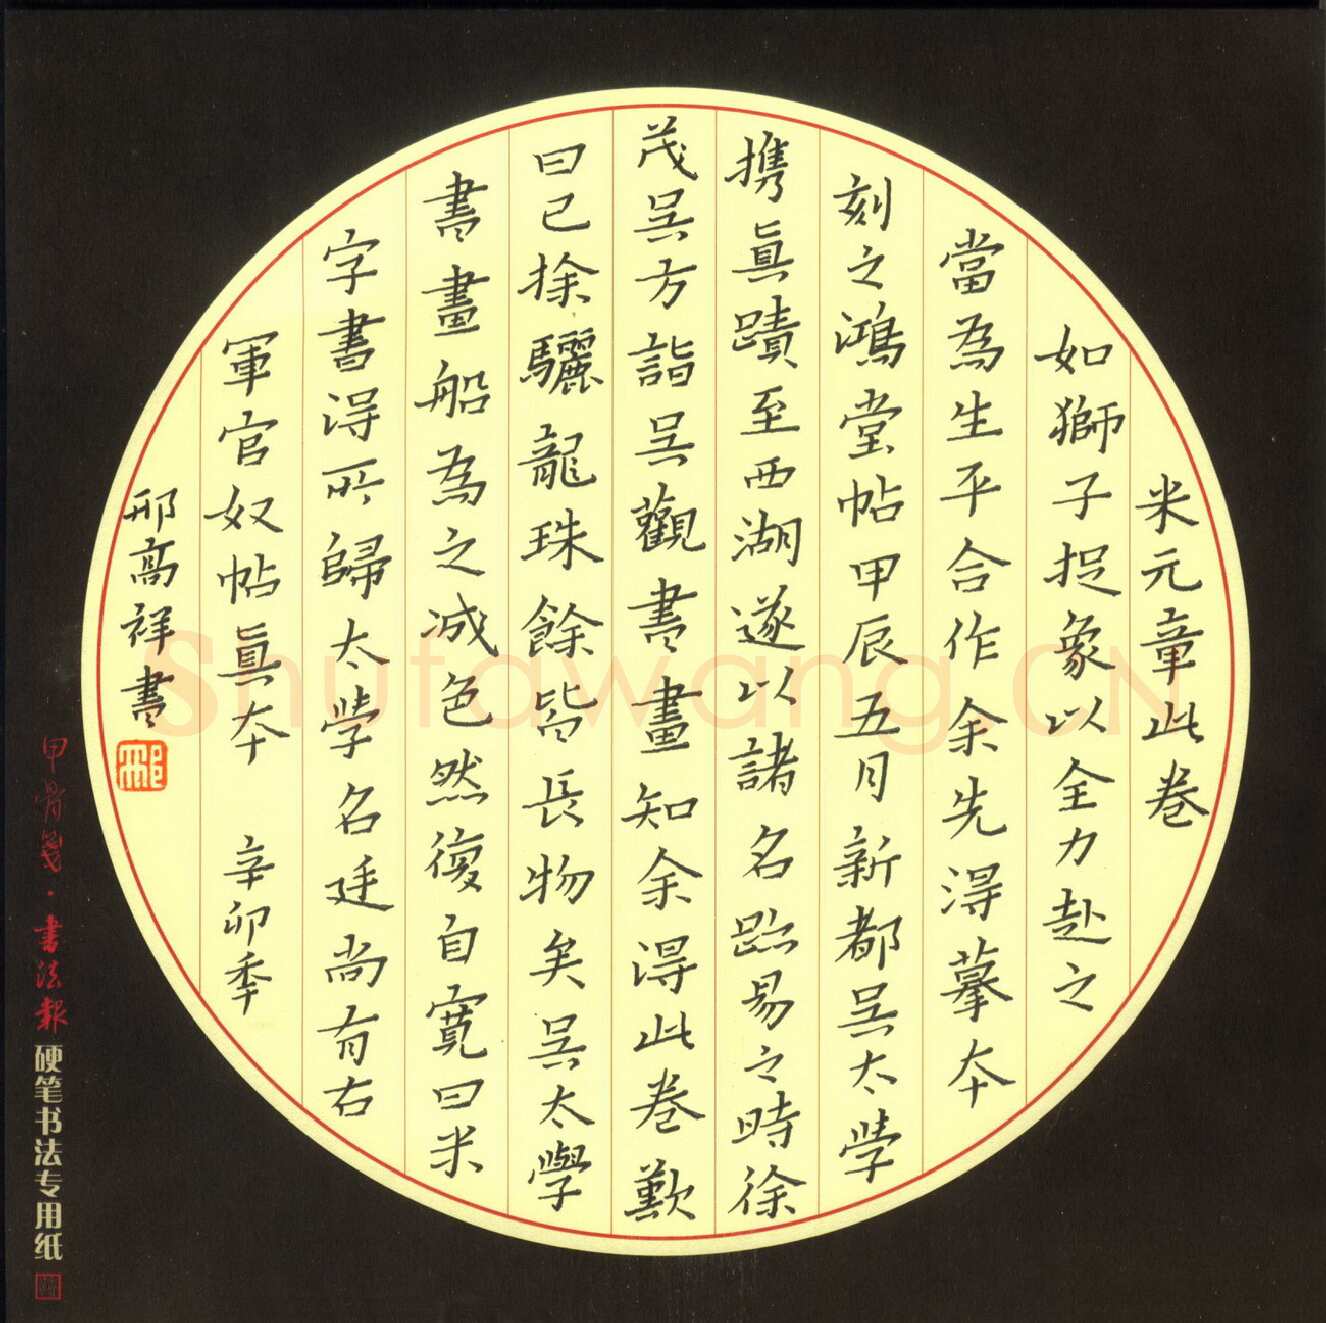 米元章此卷
如獅子捉象以全力赴之
當為生平合作余先得摹本
刻之鴻堂帖甲辰五月新都吳太學
携真蹟至西湖遂以諸名跡易之時徐
茂吳方詣吳觀書畫知余得此卷歎
曰已探驪龍珠餘皆長物矣吳太學
書畫船為之減色然復自寬曰米
字書得所歸太學名廷尚有右
軍官奴帖真本 辛卯季
邢高祥書
甲骨箋·書法報硬笔书法专用纸
Shufawang.CN